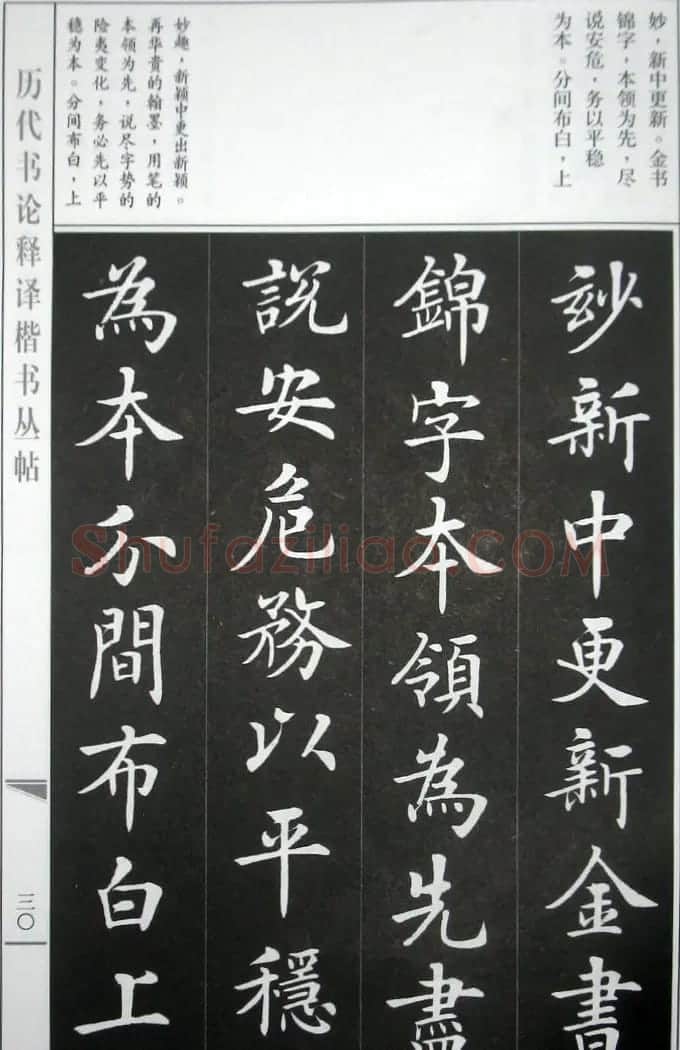 妙，新中更新。金书
锦字，本领为先，尽
说安危，务以平稳
为本。分间布白，上
妙趣，新颖中更出新颖。
再华贵的翰墨，用笔的
本领为先，说尽字势的
险夷变化，务必先以平
稳为本。分间布白，上
玅新中更新金書
錦字本領為先盡
説安危務以平穩
為本分間布白上
历代书论释译楷书丛帖
三〇
Shufaziliao.COM